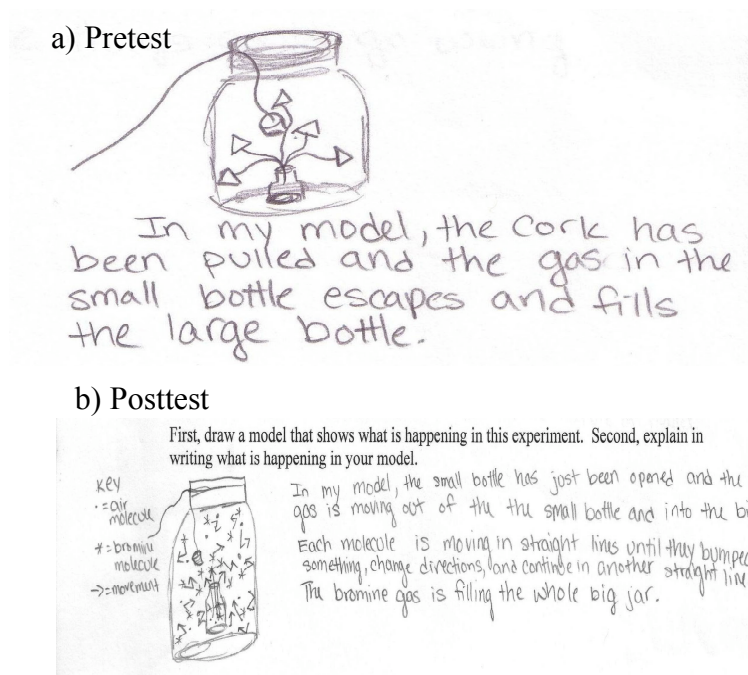 a) Pretest
In my model, the cork has
been pulled and the gas in the
small bottle escapes and fills
the large bottle.
b) Posttest
First, draw a model that shows what is happening in this experiment. Second, explain in
writing what is happening in your model.
Key
· = air
molecule
* = bromine
molecule
-> = movement
In my model, the small bottle has just been opened and the
gas is moving out of the the small bottle and into the bi
Each molecule is moving in straight lines until they bumped
something, change directions, and continue in another straight line
The bromine gas is filling the whole big jar.